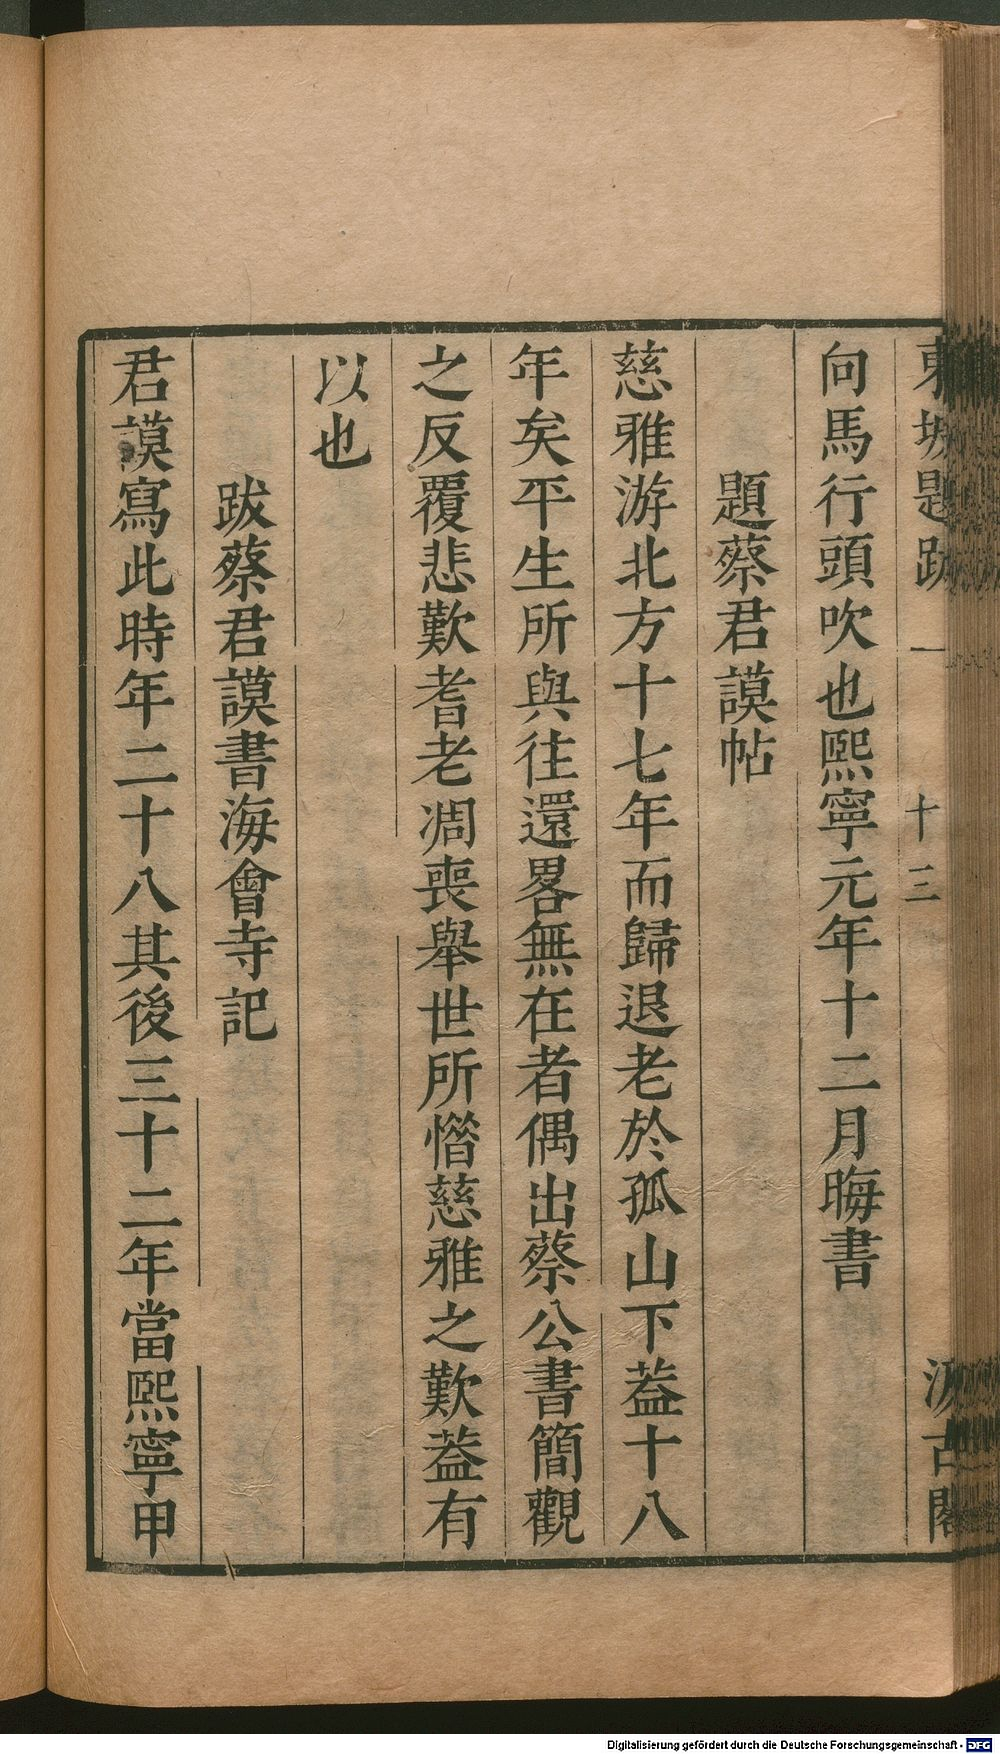 東坡題跋 一 十三 汲古閣
向馬行頭吹也熙寧元年十二月晦書
題蔡君謨帖
慈雅游北方十七年而歸退老於孤山下葢十八
年矣平生所與往還畧無在者偶出蔡公書簡觀
之反覆悲歎耆老凋喪舉世所惜慈雅之歎葢有
以也
跋蔡君謨書海會寺記
君謨寫此時年二十八其後三十二年當熙寧甲
Digitalisierung gefördert durch die Deutsche Forschungsgemeinschaft - DFG